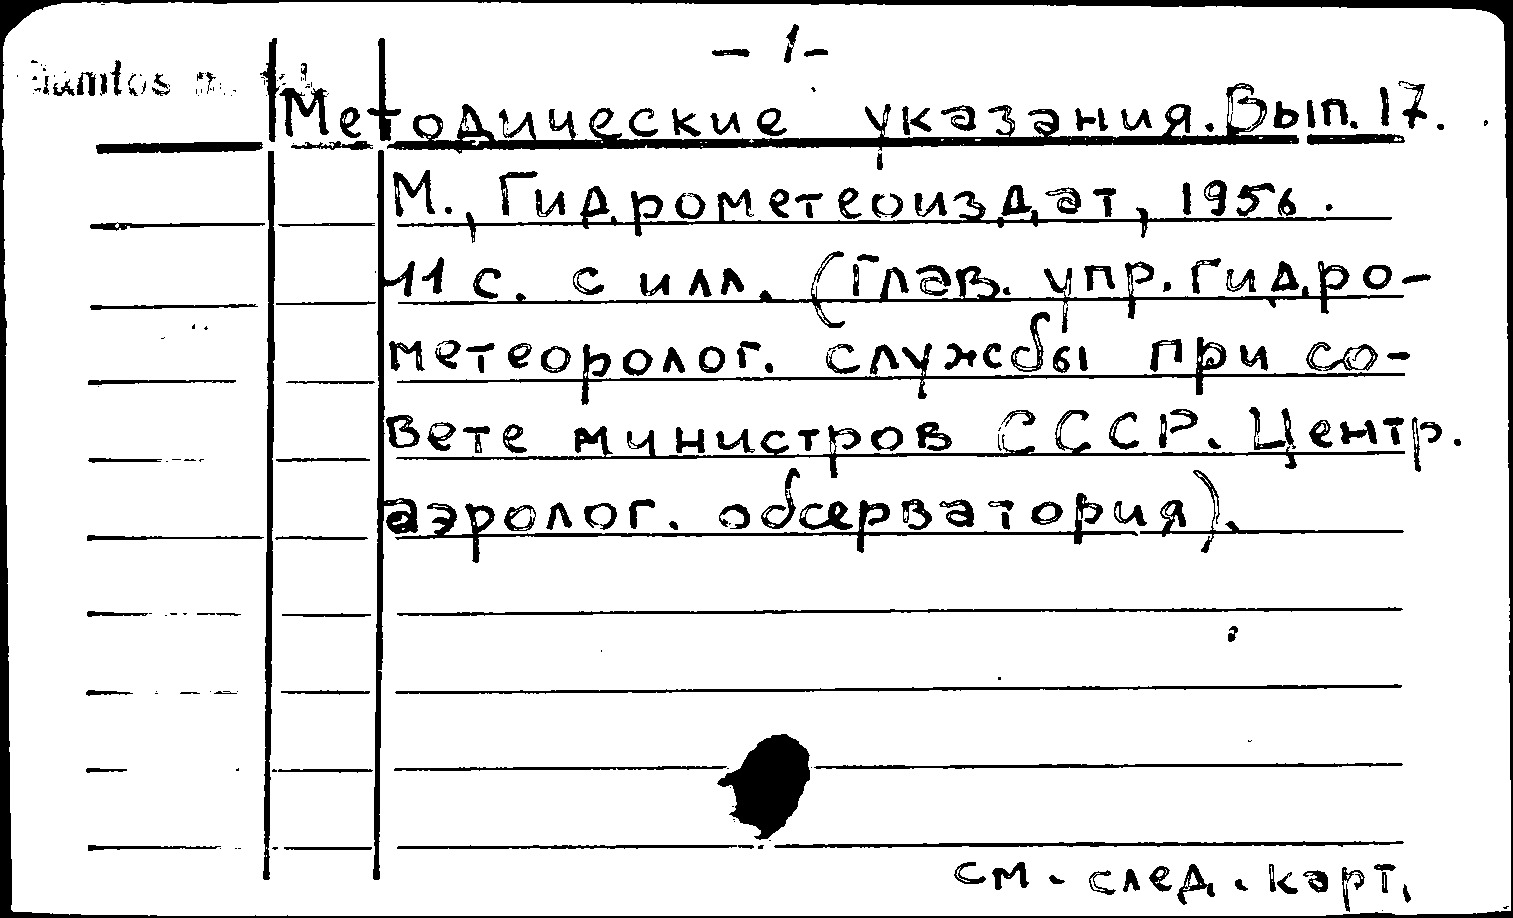 - 1 -
Методические указания. Вып. 17.
М., Гидрометеоиздат, 1956.
11 с. с илл. (Глав. упр. гидро-
метеоролог. службы при со-
вете министров СССР. Центр.
аэролог. обсерватория).
см. след. карт.